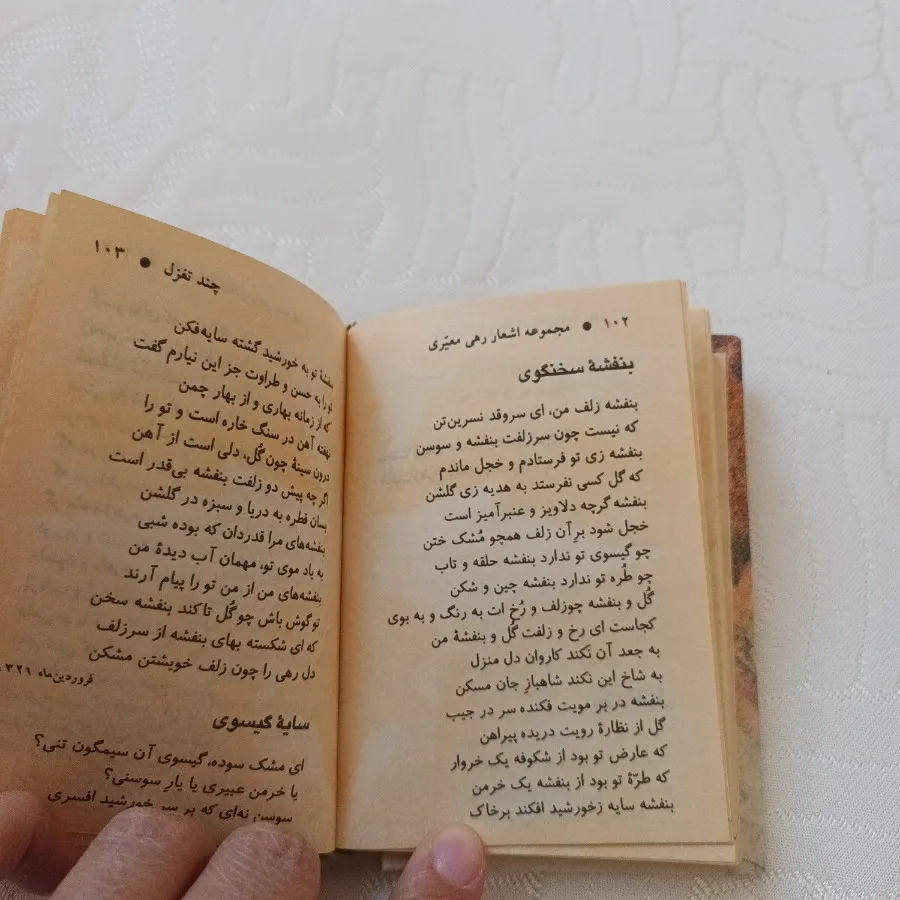 ۱۰۲ ● مجموعه اشعار رهی معیّری
بنفشهٔ سخنگوی
بنفشه زلف من، ای سروقد نسرین‌تن
که نیست چون سرزلفت بنفشه و سوسن
بنفشه زی تو فرستادم و خجل ماندم
که گل کسی نفرستد به هدیه زی گلشن
بنفشه گرچه دلاویز و عنبرآمیز است
خجل شود برِ آن زلف همچو مُشک ختن
چو گیسوی تو ندارد بنفشه حلقه و تاب
چو طُره تو ندارد بنفشه چین و شکن
گُل و بنفشه چوزلف و رُخ ات به رنگ و به بوی
کجاست ای رخ و زلفت گُل و بنفشهٔ من
به جعد آن نَکند کاروان دل منزل
به شاخ این نکند شاهبازِ جان مسکن
بنفشه در بر مویت فکنده سر در جیب
گل از نظارهٔ رویت دریده پیراهن
که عارض تو بود از شکوفه یک خروار
که طرّهٔ تو بود از بنفشه یک خرمن
بنفشه سایه زخورشید افکند برخاک
چند تغزل ● ۱۰۳
بنفشهٔ تو به خورشید گشته سایه‌فکن
تو را به حسن و طراوت جز این نیارم گفت
که از زمانه بهاری و از بهار چمن
نهفته آهن در سنگ خاره است و تو را
درون سینهٔ چون گُل، دلی است از آهن
اگر چه پیش دو زلفت بنفشه بی‌قدر است
بسان قطره به دریا و سبزه در گلشن
بنفشه‌های مرا قدردان که بوده شبی
به یاد موی تو، مهمان آب دیدهٔ من
بنفشه‌های من از من تو را پیام آرند
تو گوش باش چو گُل تا کند بنفشه سخن
که ای شکسته بهای بنفشه از سرزلف
دل رهی را چون زلف خویشتن مشکن
فروردین‌ماه ۱۳۲۱
سایهٔ گیسوی
ای مشک سوده، گیسوی آن سیمگون تنی؟
یا خرمن عبیری یا پارِ سوسنی؟
سوسن نه‌ای که بر سر خورشید افسری